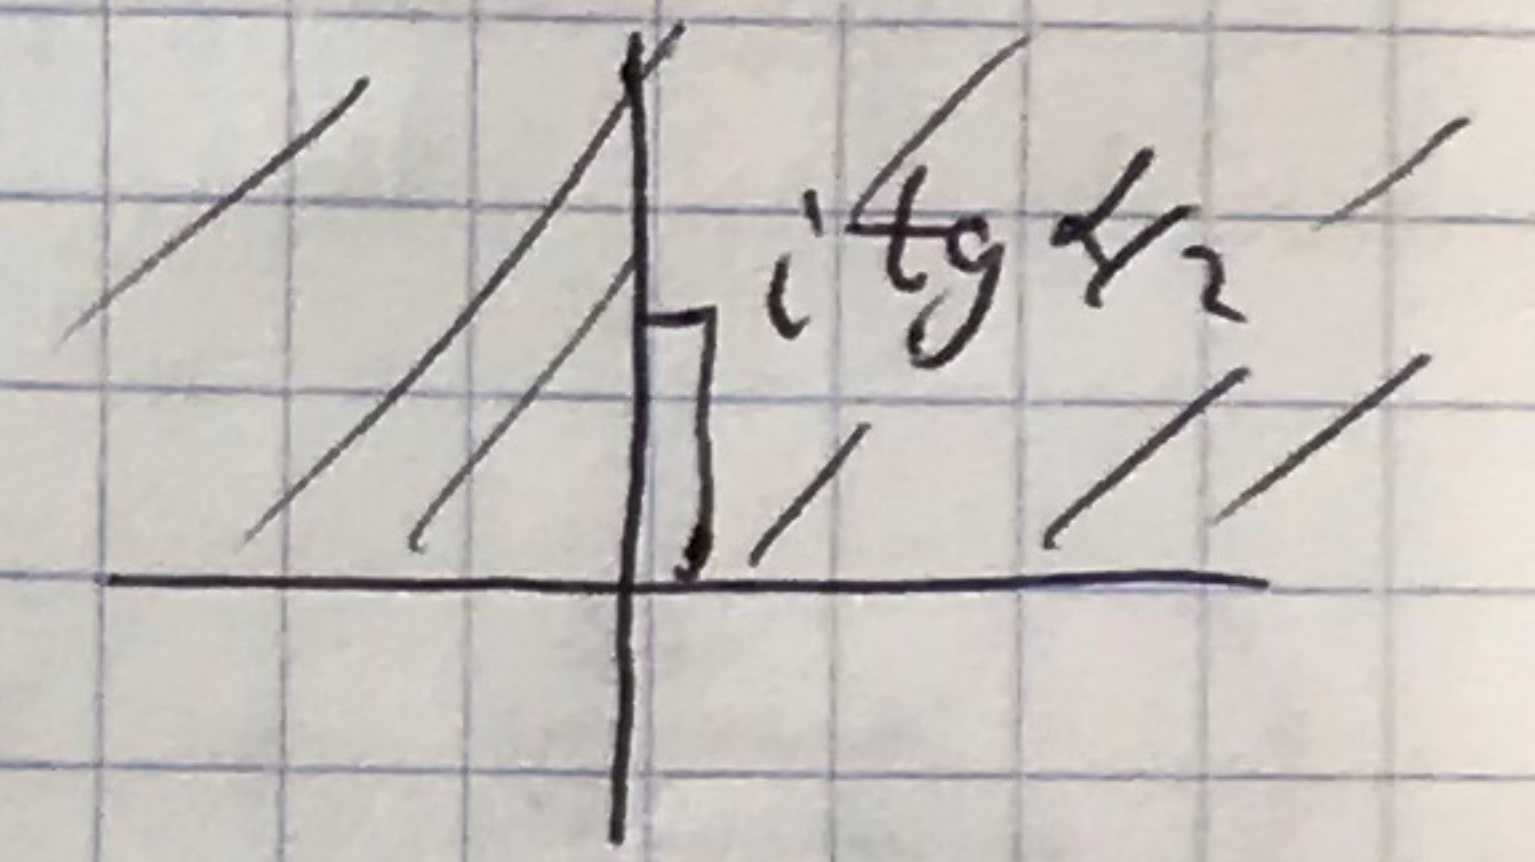 i tg α/2